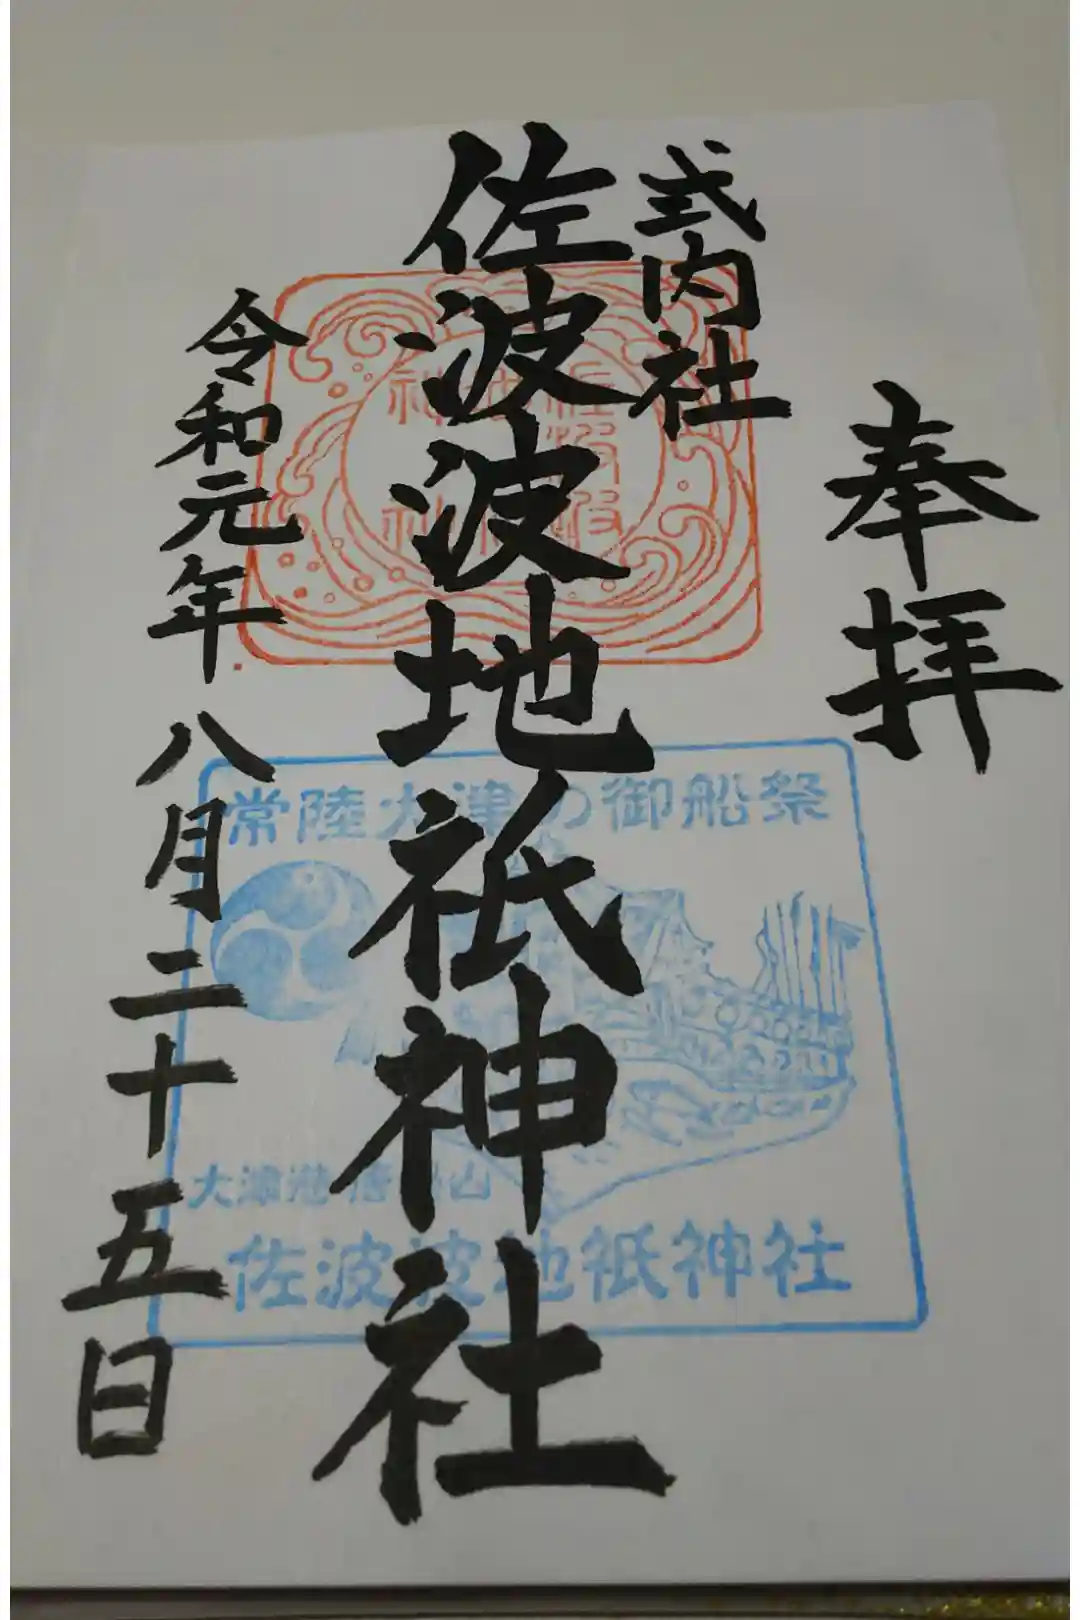 奉拝
式内社
佐波波地祇神社
令和元年八月二十五日
常陸大津の御船祭
大津港 唐帰山
佐波波地祇神社